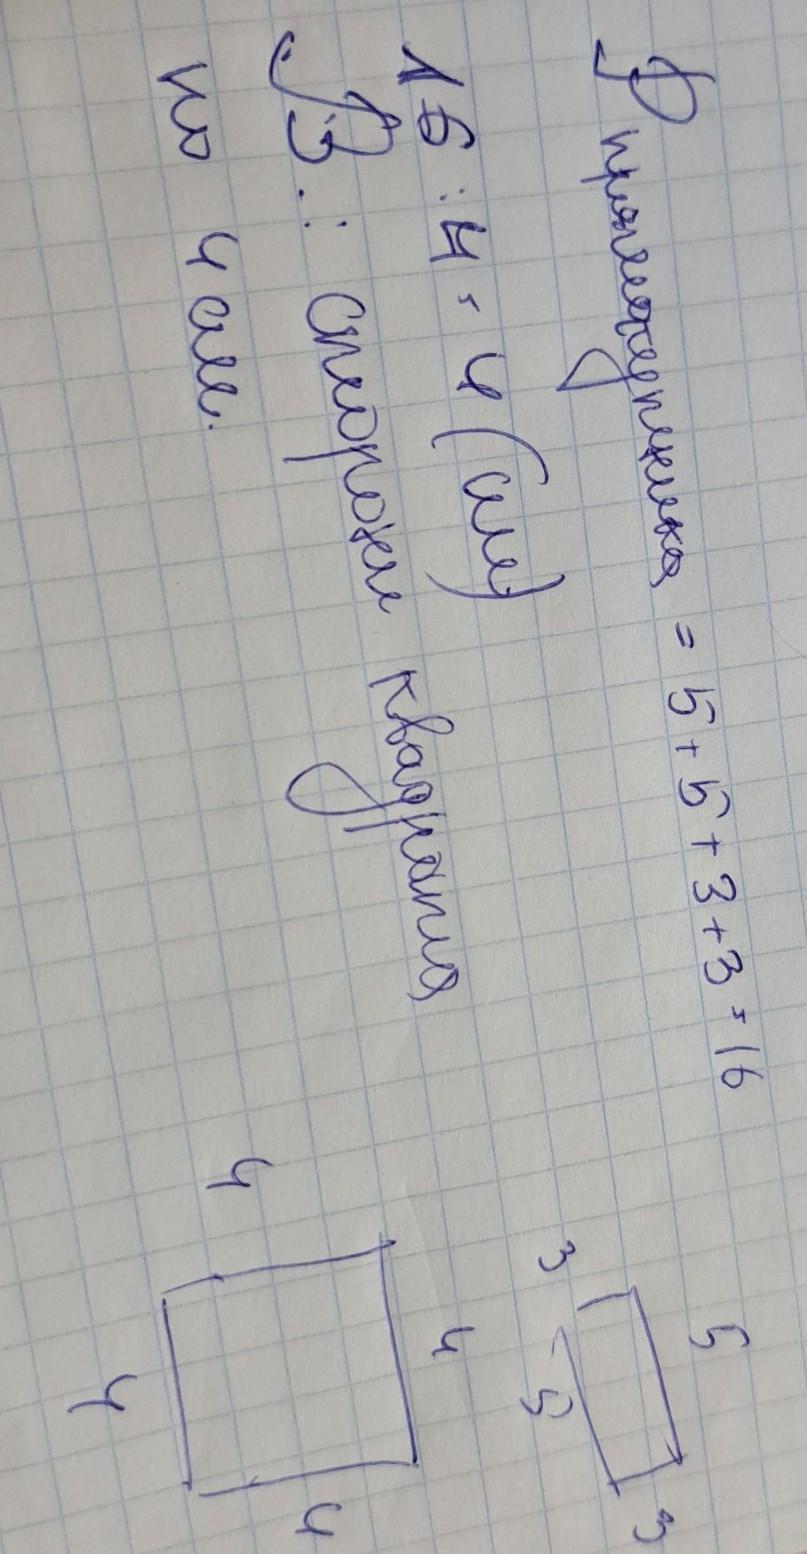 P прямоугольника = 5+5+3+3=16
16:4=4 (см)
Из.: Стороны квадрата
по 4 см.
5
3
5
3
4
4
4
4